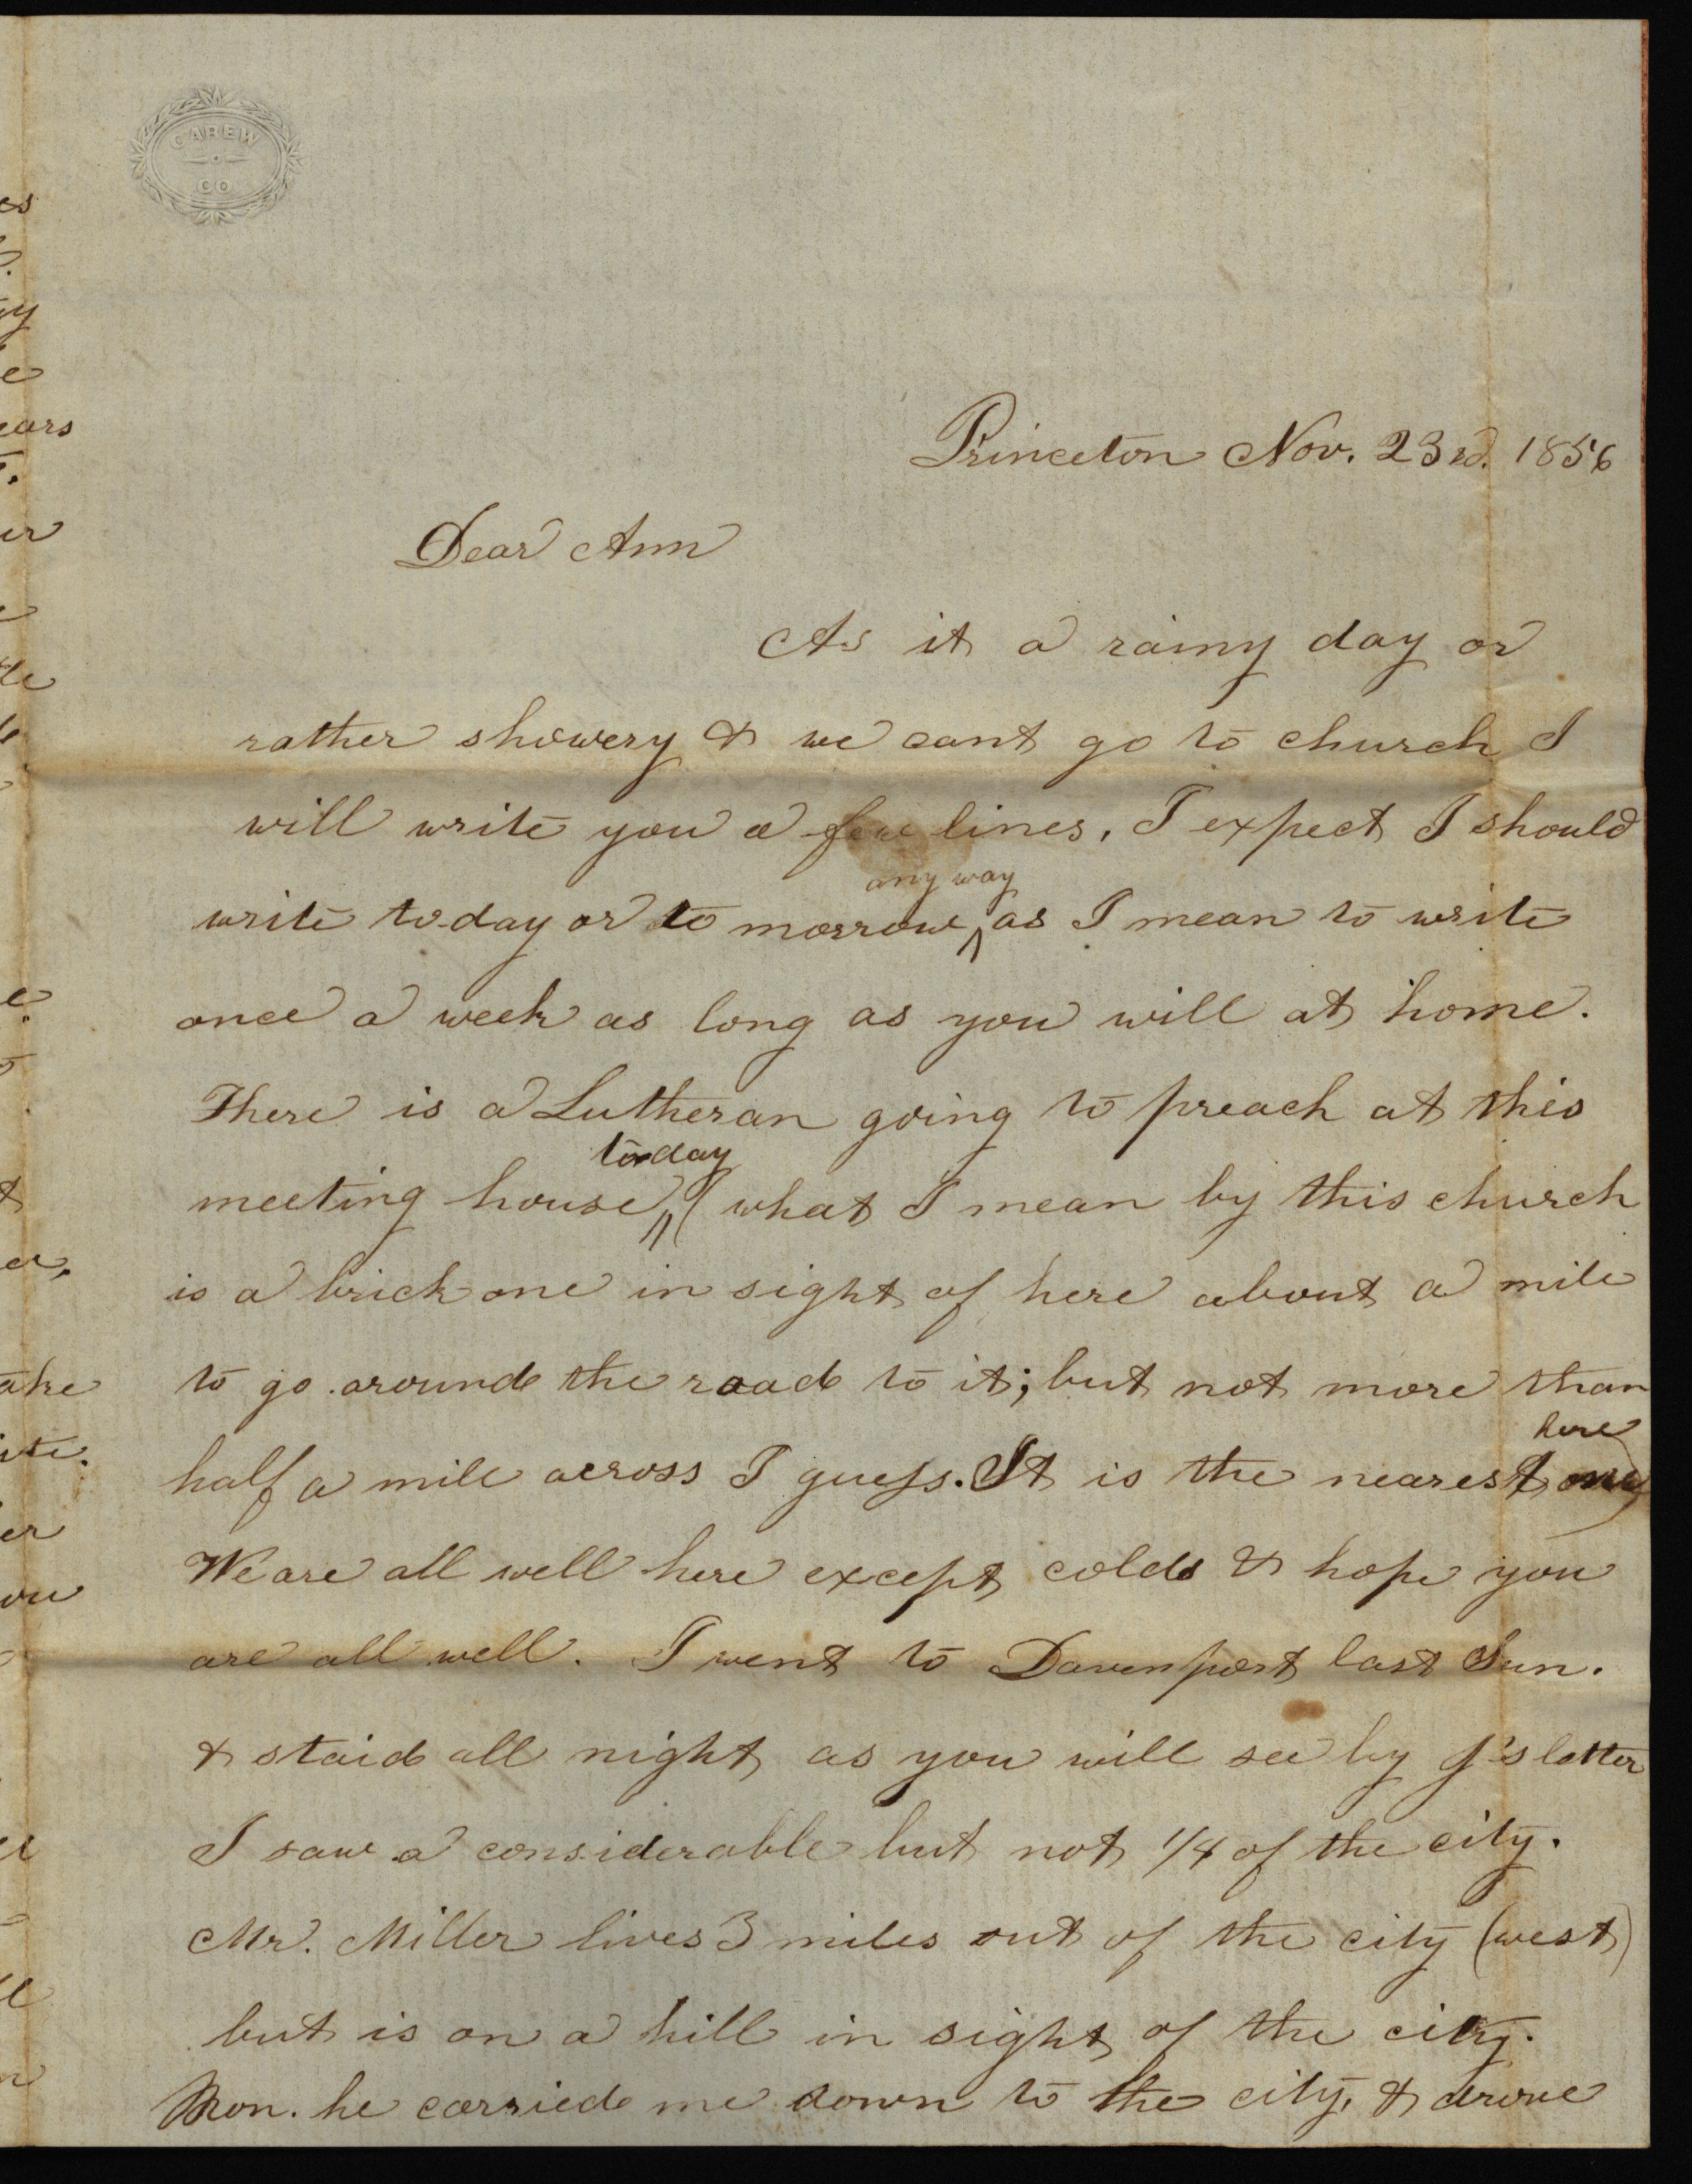 CAREW
CO
Princeton Nov. 23rd. 1856
Dear Ann
As it a rainy day or
rather showery & we cant go to church I
will write you a few lines, I expect I should
any way
write to-day or to morrow, as I mean to write
once a week as long as you will at home.
There is a Lutheran going to preach at this
to-day
meeting house, (what I mean by this church
is a brick one in sight of here about a mile
to go around the road to it; but not more than
here
half a mile across I guess. It is the nearest one)
We are all well here except colds & hope you
are all well. I went to Davenport last Sun.
& staid all night, as you will see by J's letter
I saw a considerable but not 1/4 of the city.
Mr. Miller lives 3 miles out of the city (west)
but is on a hill in sight of the city.
Mon. he carried me down to the city, & drove